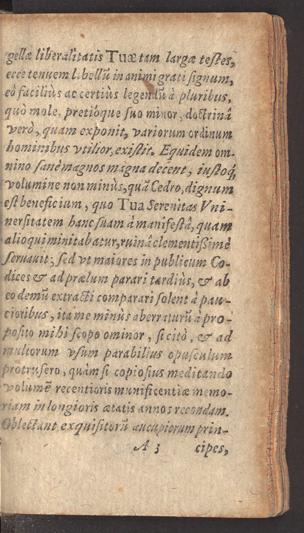 gellæ liberalitatis Tuæ tam largæ testes,
ecce tenuem l.bellũ in animi grati signum,
eò faciliùs ac certiùs legendũ à pluribus,
quò mole, pretióque suo minor, doctrinâ
verò, quam exponit, variorum ordinum
hominibus vtilior, existit. Equidem om-
nino sanè magnos magna decent, iustoq́;
volumine non minùs, quã Cedro, dignum
est beneficium, quo Tua Serenitas Vni-
uersitatem hanc suam à manifestâ, quam
alioqui minitabatur, ruinâ clementissimè
seruauit; sed vt maiores in publicum Co-
dices & ad prælum parari tardiùs, & ab
eo demũ extracti comparari solent à pau-
cioribus, ita me minùs aberraturũ à pro-
posito mihi scopo ominor, si citò, & ad
multorum vsum parabilius opusculum
protrusero, quàm si copiosius meditando
volumẽ recentioris munificentiæ memo-
riam in longioris ætatis annos recondam.
Oblectant exquisitorũ aucupiorum prin-
A 3 cipes,